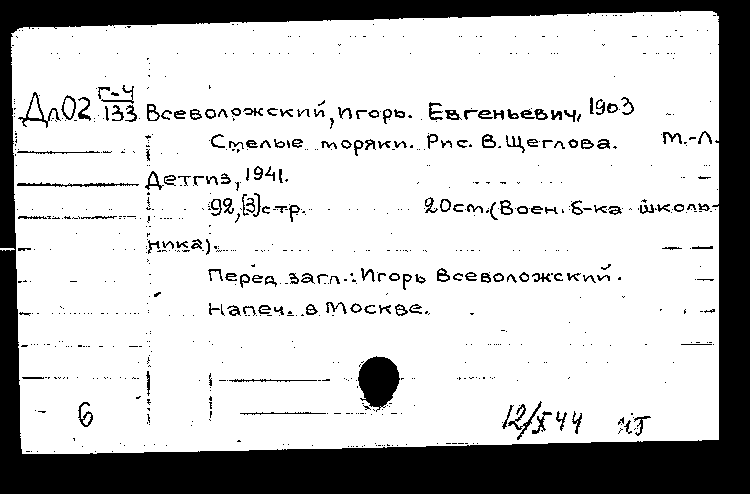 Дл02 Г-4/133 Всеволожский, Игорь. Евгеньевич, 1903
Смелые моряки. Рис. В. Щеглова. М.-Л.
Детгиз, 1941.
92,[3] стр. 20см. (Воен. б-ка школь-
ника).
Перед загл.: Игорь Всеволожский.
Напеч. в Москве.
6 12/X 44